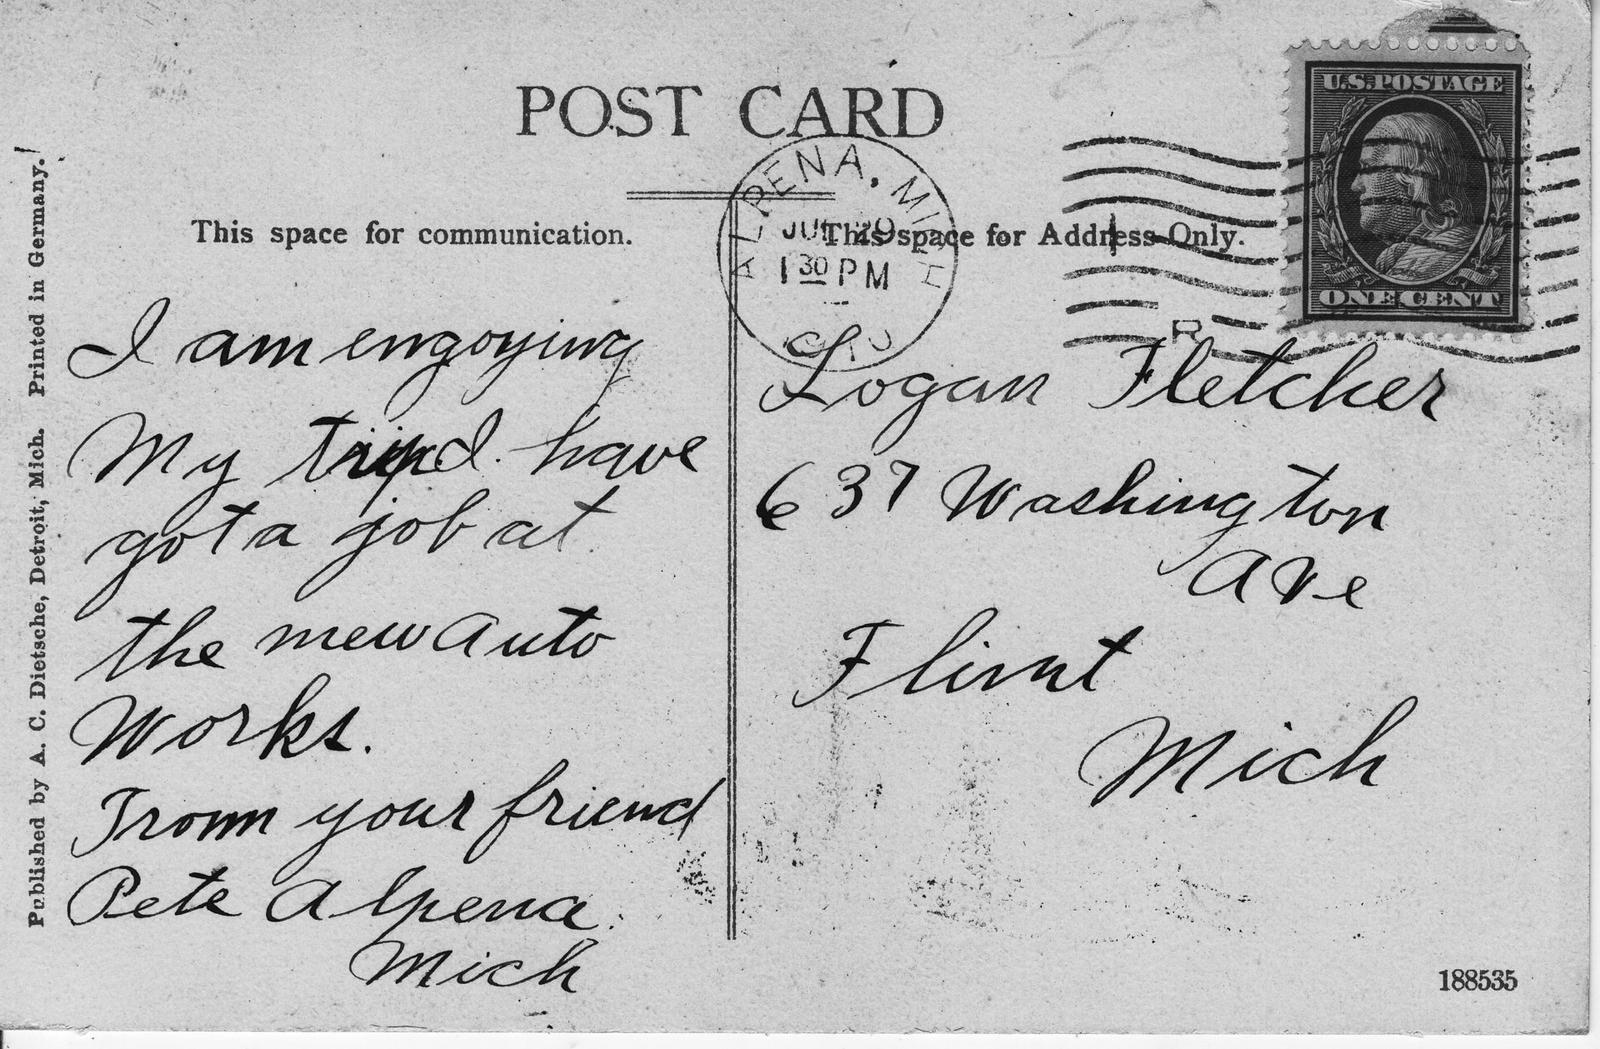 POST CARD
U.S. POSTAGE
ONE CENT
ALPENA, MICH
JUL 29
1 30 PM
R
This space for communication.
This space for Address Only.
I am engoying
My trip I have
got a job at
the new Auto
Works.
From your friend
Pete Alpena
Mich
Logan Fletcher
637 Washington
Ave
Flint
Mich
Published by A. C. Dietsche, Detroit, Mich. Printed in Germany.
188535